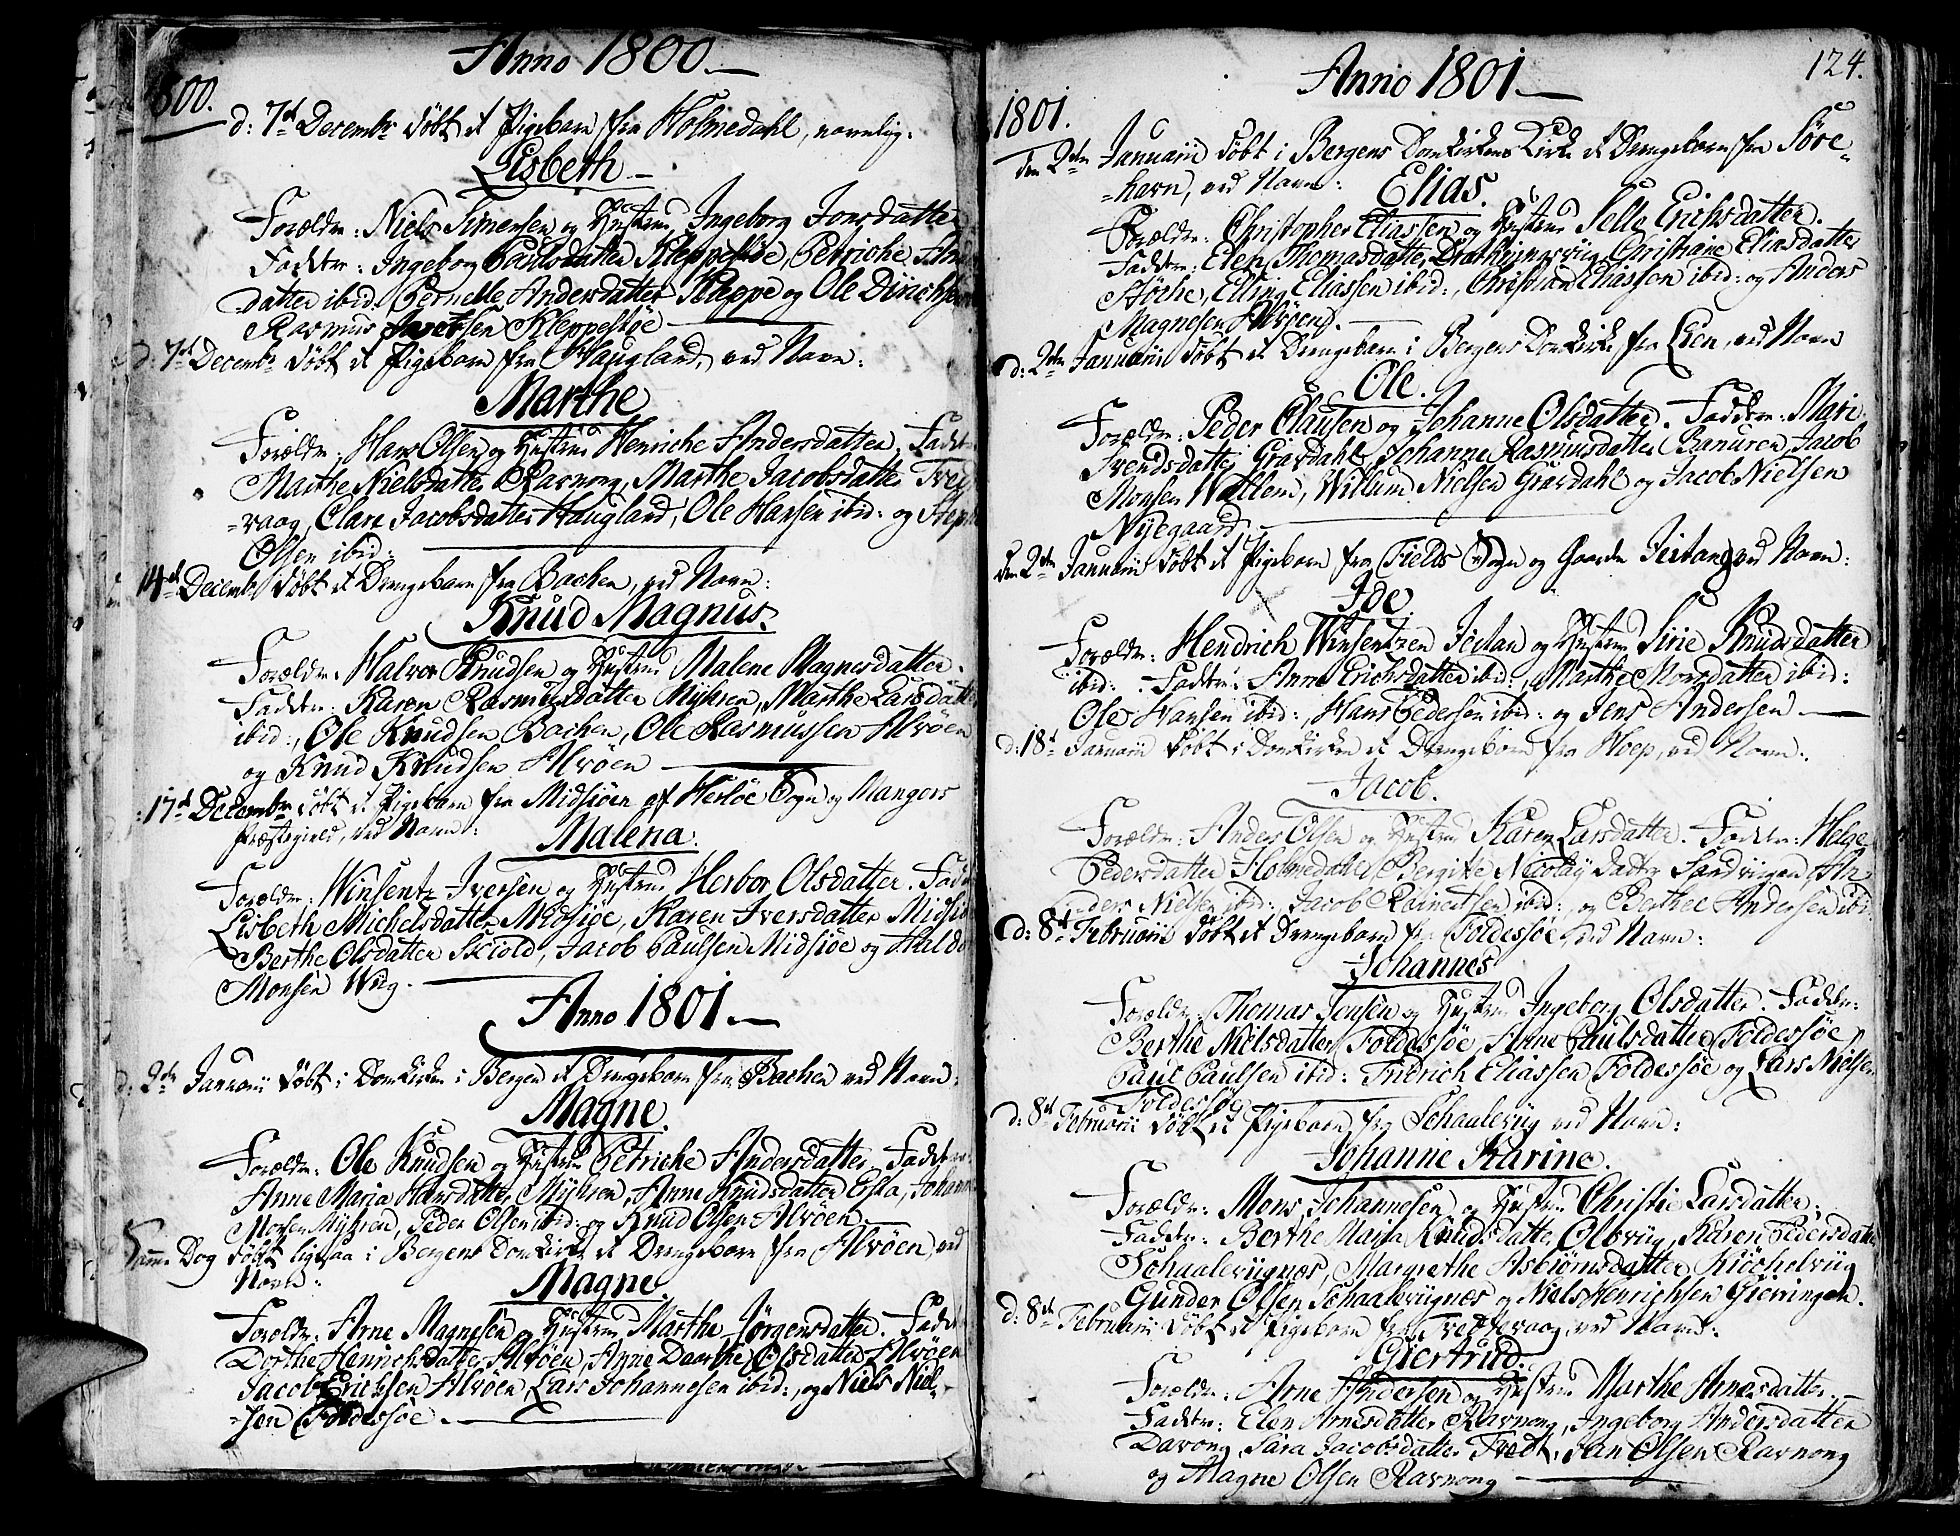 Anno 1800.
1800.
d: 7de Decembr døbt et Pigebarn fra Holmedahl, navnlig:
Lisbeth
Forældr: Niels Simensen og Hustrue Ingeborg Jonsdatter
Faddr: Ingeborg Paulsdatter Kleppestøe, Petriche
datter ibid: Pernelle Andersdatter Kleppe og Ole
Rasmus Jacobsen Kleppestøe
d: 7de Decembr døbt et Pigebarn fra Haugland, ved Navn:
Marthe
Forældr: Hans Olsen og Hustrue Henriche Andersdatter. Faddr:
Marthe Nielsdatter Ravnong, Marthe Jacobsdatter Tvet
=vaag, Clare Jacobsdatter Haugland, Ole Hansen ibid: og
Olsen ibid:
14de Decembr døbt et Drengebarn fra Bachen, ved Navn:
Knud Magnus.
Forældr: Halvor Knudsen og Hustrue Malene Magnesdatter.
Faddr: Karen Rasmusdatter Myhren, Marthe Larsdatter
ibid:, Ole Knudsen Bachen, Ole Rasmussen Alvøen
og Knud Knudsen Alvøen
17de Decembr døbt et Pigebarn fra Midsiøen af Herløe Sogn og Mangers
Præstegield, ved Navn:
Malena.
Forældr: Winsentz Iversen og Hustrue Herbor Olsdatter. Faddr
Lisbeth Michelsdatter Midsiøe, Karen Iversdatter Midsiøe
Berthe Olsdatter Skiold, Jacob Paulsen Midsiøe og
Monsen Wiig.
Anno 1801.
d: 2den Januarii døbt i Domkirken i Bergen et Drengebarn fra Bachen ved Navn:
Magne.
Forældr: Ole Knudsen og Hustrue Petriche Andersdatter. Faddr:
Anne Maria Hansdatter Myhren, Anne Knudsdatter, Johannes
Monsen Myhren, Peder Olsen ibid: og Knud Olsen Alvøen
Samme Dag døbt ligesaa i Bergens Domkirke et Drengebarn fra Alvøen, ved
Navn:
Magne.
Forældr: Arne Magnesen og Hustrue Marthe Jørgensdatter. Faddr
Dorthe Henrichsdatter Alvøen, Anne Daarthe Olsdatter Alvøen
Jacob Erichsen Alvøen, Lars Johannesen ibid:, og Niels Niel=
=sen Foldessøe.
Anno 1801.
124.
1801.
den 2den Januarii døbt i Bergens Domkirkens Kirke et Drengebarn fra Støre=
=havn, ved Navn: Elias.
Forældr: Christopher Eliassen og Hustrue Selle Erichsdatter.
Faddr: Elen Thomasdatter, Christiane Eliasdatter
Elling Eliassen ibid:, Christian Eliassen ibid: og Anders
Magnesen Alvøen.
d: 2den Januarii døbt et Drengebarn i Bergens Domkirke fra Lien, ved Navn
Ole.
Forældr: Peder Clausen og Johanne Olsdatter. Faddr: Mari
Svendsdatter Gravdahl, Johanne Rasmusdatter, Jacob
Monsen Wallem, Willum Nielsen Gravdahl og Jacob Nielsen
Nyegaard.
den 2den Januarii døbt et Pigebarn fra Fields Sogn og Gaarden Jestan, ved Navn:
Ide.
Forældr: Hendrich Winsentzen Jestan og Hustrue Sirie Knudsdatter
ibid: Faddr: Anne Erichsdatter ibid:, Marthe Monsdatter ibid:
Ole Hansen ibid:, Hans Pedersen ibid: og Jens Andersen
d: 18de Januarii døbt i Domkirken et Drengebarn fra Hoep, ved Navn:
Jacob.
Forældr: Anders Olsen og Hustrue Karen Larsdatter. Faddr: Helge
Pedersdatter Holmedahl, Bergitte Nicolay Datter Sandviigen, An=
=ders Nielsen ibid:, Jacob ibid:, og Berthel Andersen ibid:
d: 8de Februarii døbt et Drengebarn fra Foldessøe, ved Navn:
Johannes
Forældr: Thomas Jonsen og Hustrue Ingeborg Olsdatter. Faddr:
Berthe Nielsdatter Foldessøe, Arne Paulsdatter Foldessøe,
Paul Paulsen ibid: Fridrich Eliassen Foldessøe og Lars Nielsen
Foldessøe
d: 8de Februarii døbt et Pigebarn fra Schaaleviig ved Navn:
Johanne Karine.
Forældr: Mons Johannesen og Hustrue Christi Larsdatter.
Faddr: Berthe Maria Knudsdatter Olsviig, Karen Pedersdatter
Schaaleviignes, Margrethe Asbiørnsdatter Kiøchelviig
Gunder Olsen Schaaleviignes og Niels Henrichsen Gierringen.
d: 8de Februarii døbt et Pigebarn fra Tvettevaag, ved Navn:
Giertrud.
Forældr: Arne Andersen og Hustrue Marthe Arnesdatter.
Faddr: Elen Arnesdatter Ravnong, Ingeborg Andersdatter
Davong, Sara Jacobsdatter Tvedt, Jan Olsen Ravnong
og Magne Olsen Ravnong